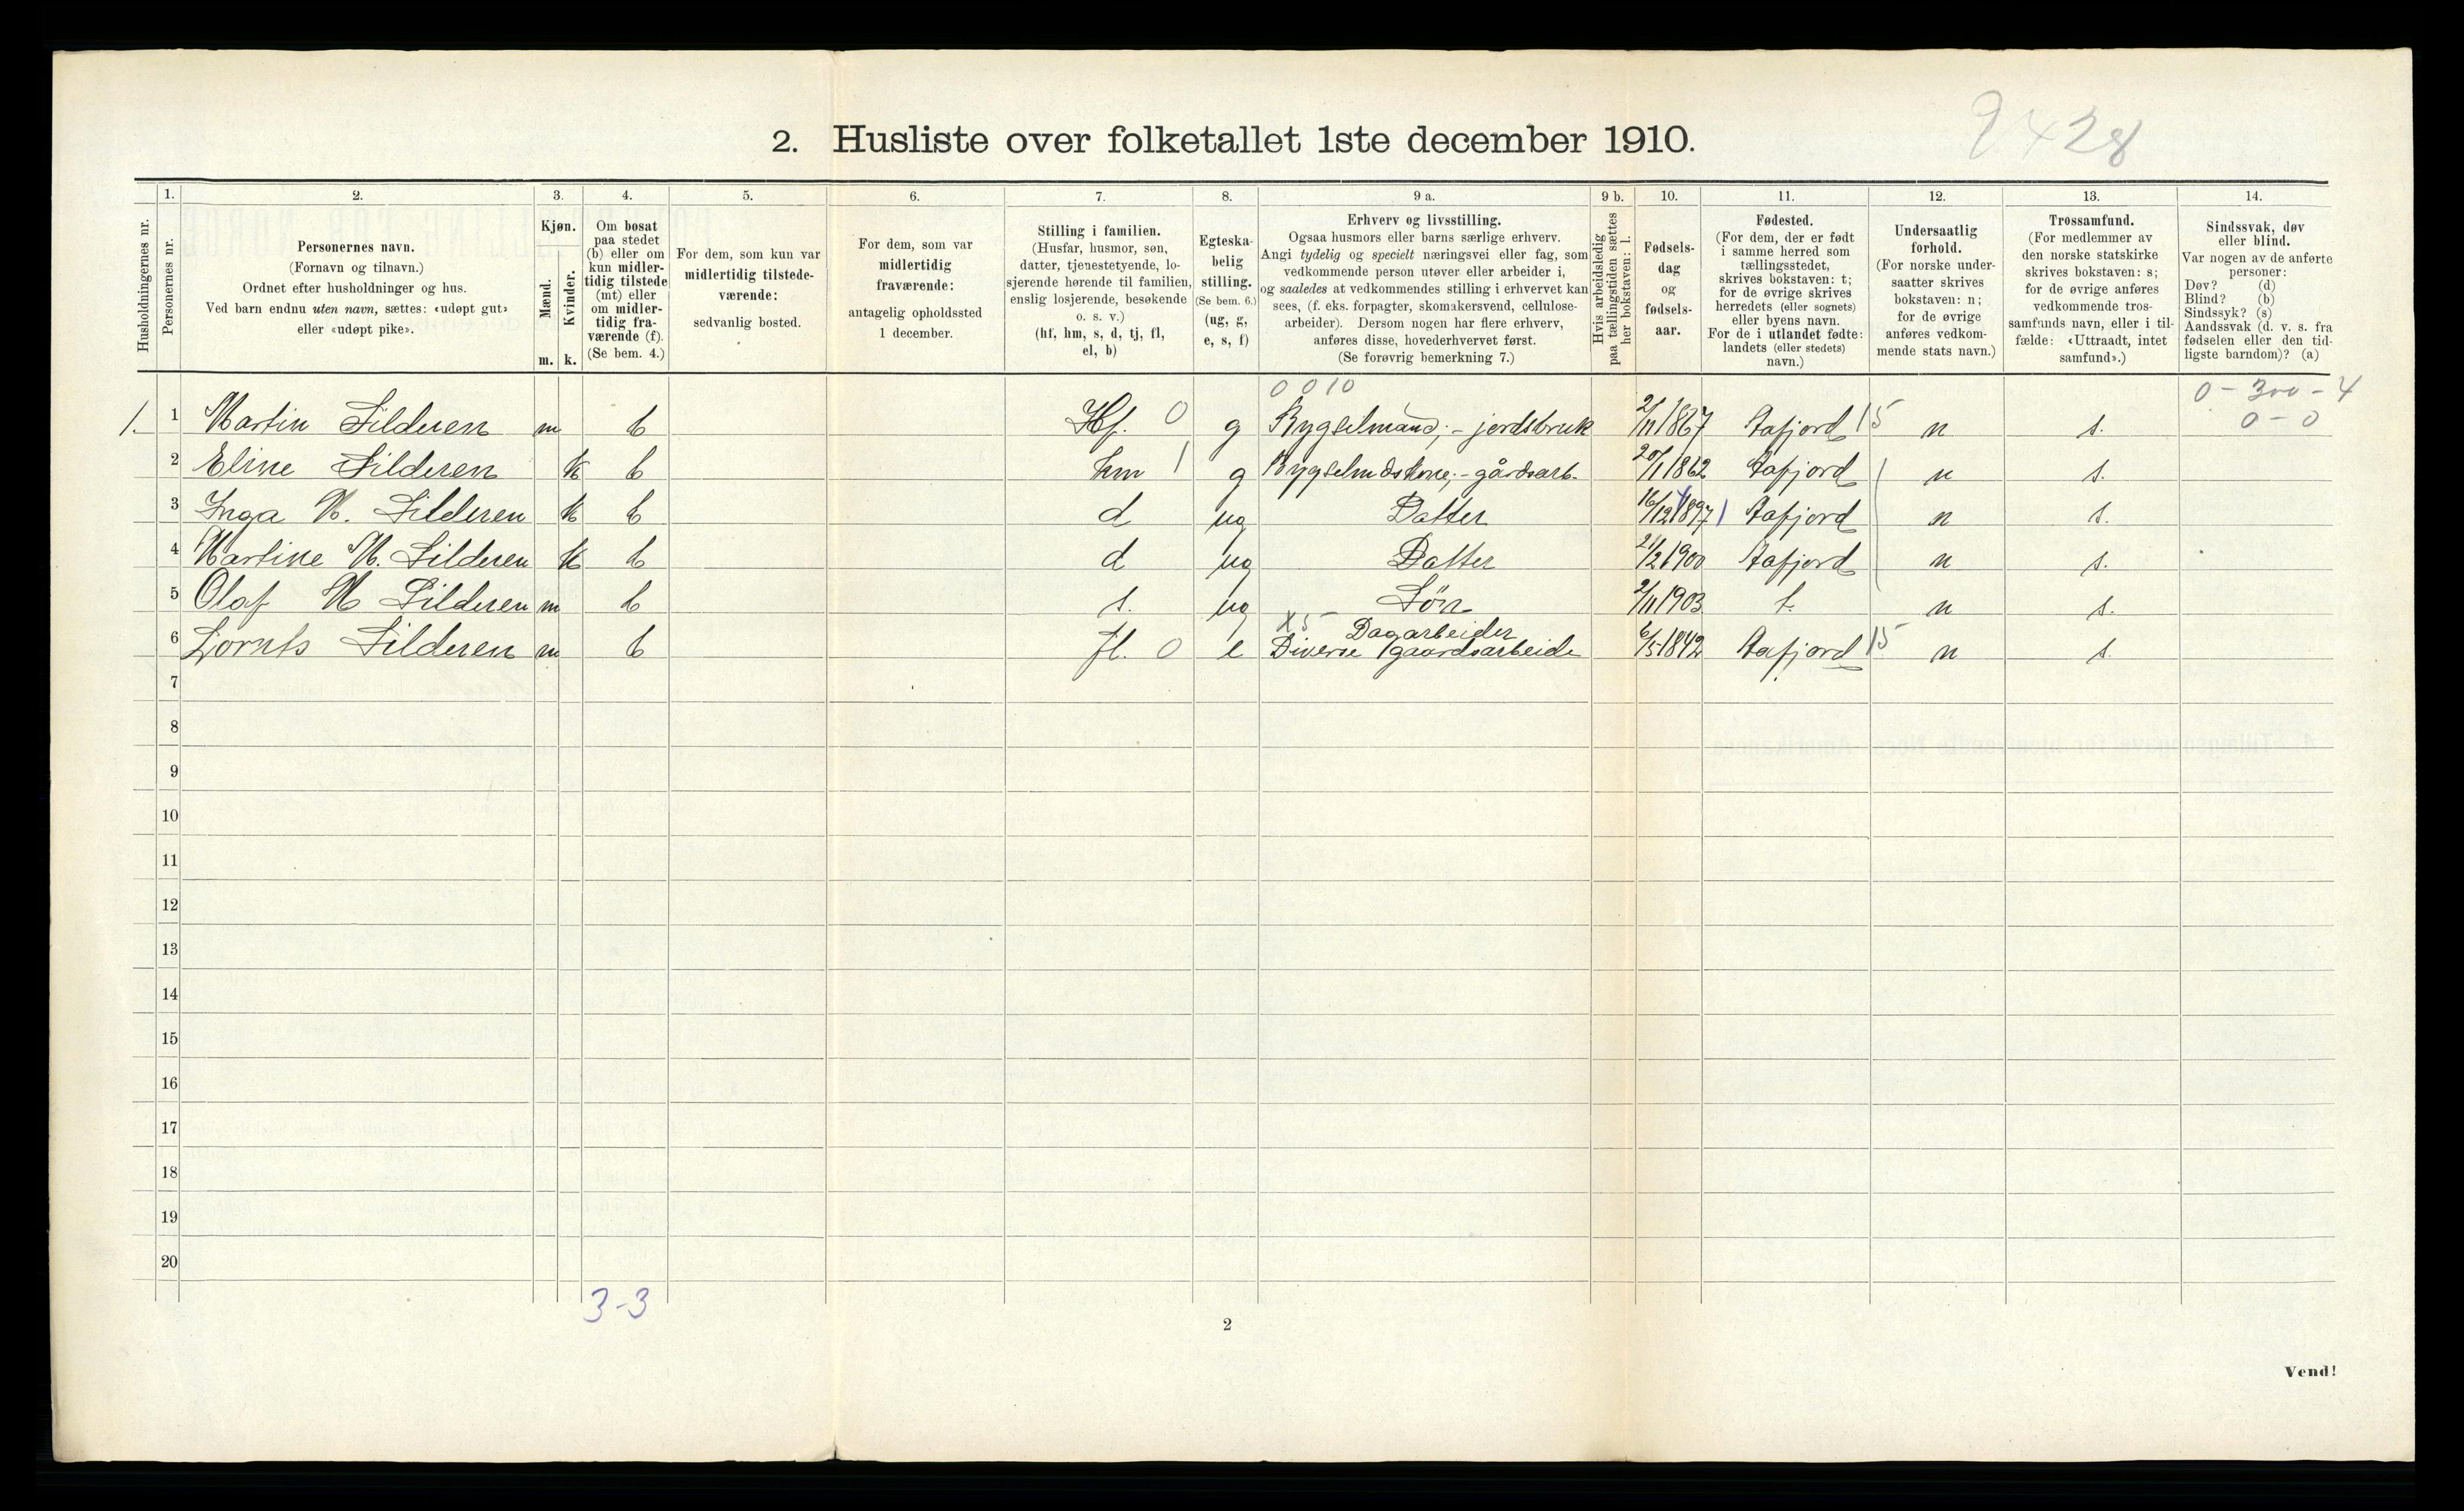 2. Husliste over folketallet 1ste december 1910.
9428
Husholdningernes nr.
1.
Personernes nr.
2.
Personernes navn.
(Fornavn og tilnavn.)
Ordnet efter husholdninger og hus.
Ved barn endnu uten navn, sættes: «udøpt gut»
eller «udøpt pike».
3.
Kjøn.
Mænd.
m.
Kvinder.
k.
4.
Om bosat
paa stedet
(b) eller om
kun midler-
tidig tilstede
(mt) eller
om midler-
tidig fra-
værende (f).
(Se bem. 4.)
5.
For dem, som kun var
midlertidig tilstede-
værende:
sedvanlig bosted.
6.
For dem, som var
midlertidig
fraværende:
antagelig opholdssted
1 december.
7.
Stilling i familien.
(Husfar, husmor, søn,
datter, tjenestetyende, lo-
sjerende hørende til familien,
enslig losjerende, besøkende
o. s. v.)
(hf, hm, s, d, tj, fl,
el, b)
8.
Egteska-
belig
stilling.
(Se bem. 6.)
(ug, g,
e, s, f)
9 a.
Erhverv og livsstilling.
Ogsaa husmors eller barns særlige erhverv.
Angi tydelig og specielt næringsvei eller fag, som
vedkommende person utøver eller arbeider i,
og saaledes at vedkommendes stilling i erhvervet kan
sees, (f. eks. forpagter, skomakersvend, cellulose-
arbeider). Dersom nogen har flere erhverv,
anføres disse, hovederhvervet først.
(Se forøvrig bemerkning 7.)
9 b.
Hvis arbeidsledig
paa tællingstiden sættes
her bokstaven: l.
10.
Fødsels-
dag
og
fødsels-
aar.
11.
Fødested.
(For dem, der er født
i samme herred som
tællingsstedet,
skrives bokstaven: t;
for de øvrige skrives
herredets (eller sognets)
eller byens navn.
For de i utlandet fødte:
landets (eller stedets)
navn.)
12.
Undersaatlig
forhold.
(For norske under-
saatter skrives
bokstaven: n;
for de øvrige
anføres vedkom-
mende stats navn.)
13.
Trossamfund.
(For medlemmer av
den norske statskirke
skrives bokstaven: s;
for de øvrige anføres
vedkommende tros-
samfunds navn, eller i til-
fælde: «Uttraadt, intet
samfund».)
14.
Sindssvak, døv
eller blind.
Var nogen av de anførte
personer:
Døv? (d)
Blind? (b)
Sindssyk? (s)
Aandssvak (d. v. s. fra
fødselen eller den tid-
ligste barndom)? (a)
0 0 10
0 - 300 - 4
1. 1 Martin Silderen m b Hf. 0 g Bygselmand; - jordsbruk 2/11 1867 Aafjord 15 n s. 0 - 0
2 Eline Silderen k b hm 1 g Bygselmdskone; - gårdsarb. 20/1 1862 Aafjord n s.
3 Inga M. Silderen k b d ug Datter 16/12 1897 Aafjord n s.
4 Martine M. Silderen k b d ug Datter 21/2 1900 Aafjord n s.
5 Olaf M Silderen m b s. ug Søn 2/11 1903 t. n s.
X5 Dagarbeider
6 Lornts Silderen m b fl. 0 e Diverse gaardsarbeide 6/5 1842 Aafjord 15 n s.
7
8
9
10
11
12
13
14
15
16
17
18
19
20
3-3
2
Vend!